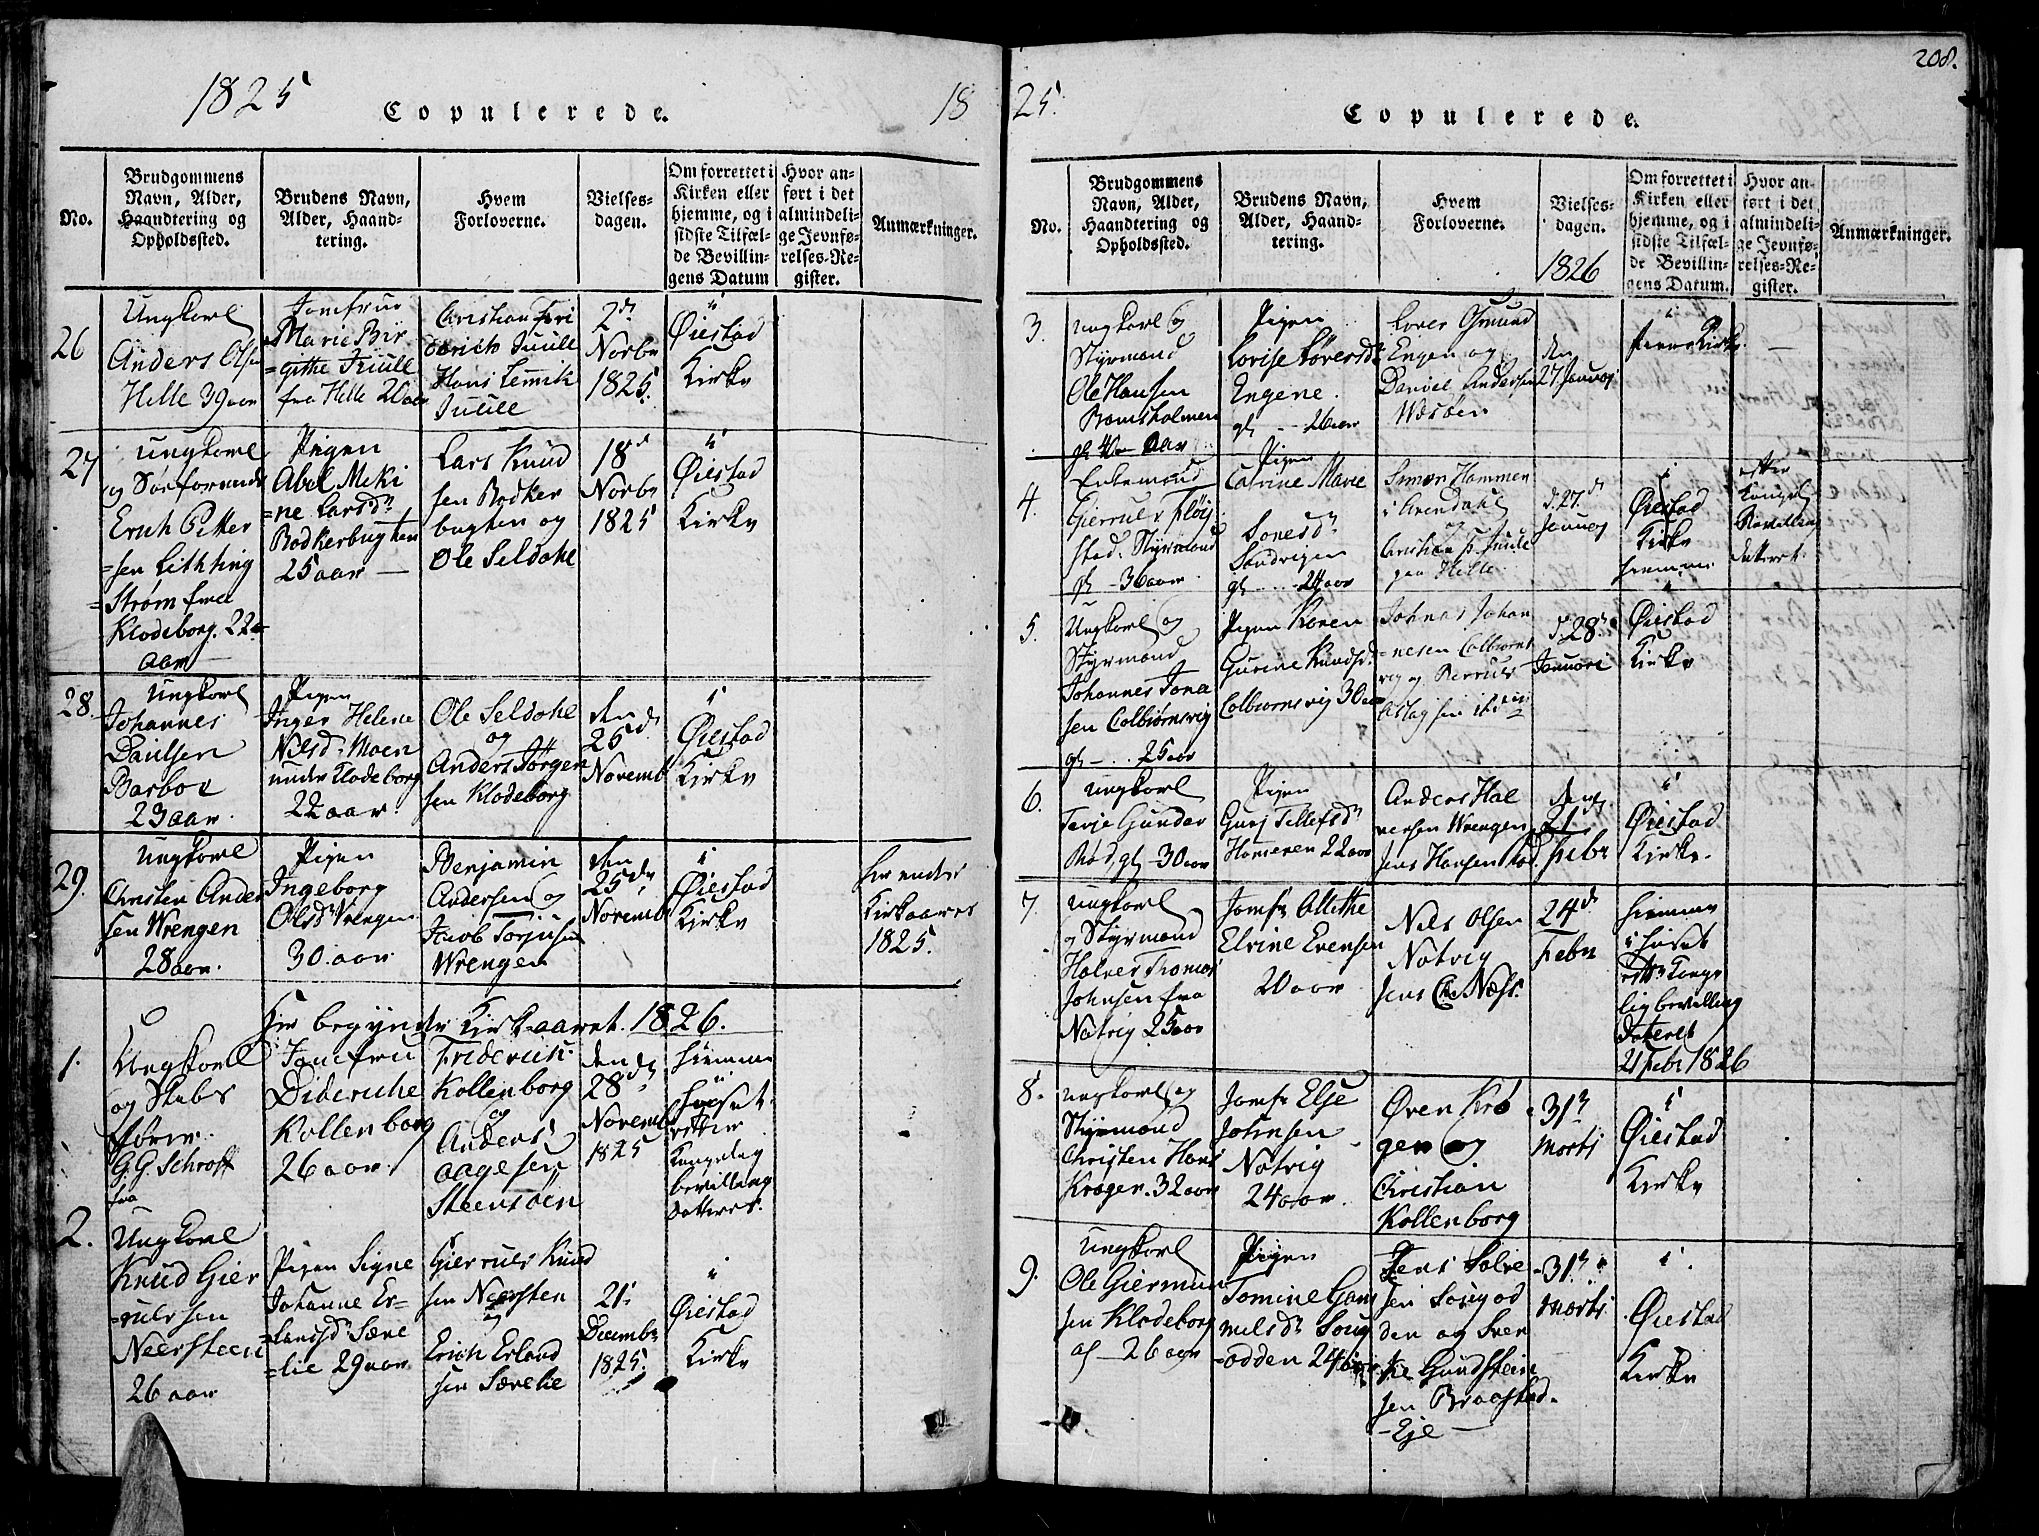 1825
Copulerede.
18
No.
Brudgommens
Navn, Alder,
Haandtering og
Opholdssted.
Brudens Navn,
Alder, Haand-
tering.
Hvem
Forloverne.
Vielses-
dagen.
Om forrettet i
Kirken eller
hjemme, og i
sidste Tilfæl-
de Bevillin-
gens Datum
Hvor an-
ført i det
almindeli-
ge Jevnfø-
relses-Re-
gister.
Anmærkninger.
26
Ungkarl
Anders Olsen
Helle 39 aar
Jomfrue
Marie Bir
=githe Juule
fra Helle 20 aar
Christian Fri
derich Juule
Hans Lemik
Juule
2d
Novbr
1825.
Øiestad
Kirke
27
Ungkarl
og Søefarende
Erich Petter
=sen Lithting
=Strøm fra
Klodeborg. 22
aar
Pigen
Abel Meki
=ne Larsdr
Bodkerbugten
25 aar
Lars Knud
sen Bodker
bugten og
Ole Seldahl
18d
Novbr
1825
Øiestad
Kirke
28
Ungkarl
Johannes
Danilsen
Barboe
23 aar.
Pigen
Inger Helene
Nilsdr Moen
under Klodeborg
22 aar
Ole Seldahl
og
Anders Jørgen
sen Klodeborg
den
25d
Novemb
Øiestad
Kirke
29.
Ungkarl
Christen Ander
sen Wrengen
28 aar.
Pigen
Ingeborg
Olsdr Vrengen
30. aar
Benjamin
Andersen og
Jacob Torjusen
Wrengen
den
25d
Novembr
Øiestad
Kirke
her ender
Kirkaaret
1825.
Her begynder Kirkaaret. 1826.
1.
Ungkarl
og Skibs
fører
G.G Schroff
fra
Jomfru
Dideriche
Kollenborg
26 aar
Friderich
Kollenborg
og
Anders
Aagesen
Steensøen
den
28d
Novemb
1825
hiemme
i Huset
efter
Kongelig
bevilling
datteret.
2.
Ungkarl
Knud Gier
=rulsen
Neersteen
26 aar
Pigen Signe
Johanne Er=
=landsdr Sære
=lie 29 aar
Gierruls Knud
sen Neersten
og
Erich Erland
sen Særelie
21
Decembr
1825.
Øiestad
Kirke
208.
25.
Copulerede.
No.
Brudgommens
Navn, Alder,
Haandtering og
Opholdssted.
Brudens Navn,
Alder, Haand-
tering.
Hvem
Forloverne.
Vielses-
dagen.
1826
Om forrettet i
Kirken eller
hjemme, og i
sidste Tilfæl-
de Bevillin-
gens Datum.
Hvor an-
ført i det
almindeli-
ge Jevnfø-
relses-Re-
gister.
Anmærkninger.
3.
Ungkarl og
Styrmand
Ole Hansen
Ramsholmen
gl 40 Aar
Pigen
Lovise Sørensdr
Engene.
gl 26 aar
Lores Osmund
Engen og
Daniel Andersen
Wesøen
den
27. Januar
Kirke
4.
Enkemand
Gierrul Fløi
stad. Styrmand
gl 36 aar
Pigen
Catrine Marie
Sonesdr
Sandvigen
gl 24 aar
Simon Hammer
i Arendahl
og
Christian F. Juule
paa Helle
d. 27
Januar
Øiestad
Kirke
hiemme
efter
Kongel
Bevilling
datteret.
5.
Ungkarl og
Styrmand
Johannes Jona
sen Colbiørnsvig
gl 25 aar
Pigen Karen
Gurine Knudsd.
Colbiørnsvig 30 aar
Johnas Johan
=nesen Colbiørns
vig og
Aslagsen
28
Januari
Øiestad
Kirke
6.
Ungkarl
Terje Gunder
Rød gl 30 aar
Pigen
Gurj Tellefsdr
Homeren 22 aar
Andeas Hal
versen Wrengen
Jens Hansen Rød.
den
21
Febr
Øiestad
Kirke.
7
Ungkarl
og Styrmand
Halver Thomas
Johnsen fra
Natvig 25 aar
Jomfr Allethe
Elvine Evensen
20 aar
Nils Olsen
Natvig
Jens Chr Næss.
24d
Febr
hiemme
i Huset
efter Konge
lig bevilling
Dateret
21 Febr 1826
8.
Ungkarl og
Styrmand
Christen Hans
Krøger. 32 aar
Jomfr Else
Johnsen
Natvig
24 aar.
Øven Krø
ger og
Christian
Kollenborg
31
Marti
Øiestad
Kirke
9.
Ungkarl
Ole Giermun
sen Klodeborg
26 aar
Pigen
Tomine Gam
melsdr Soug
=odden 24
Jens Salve
sen Sougod
den og Sven
ke Gundstein
sen Braastad
Eje
31
Marti
Øiestad
Kirke